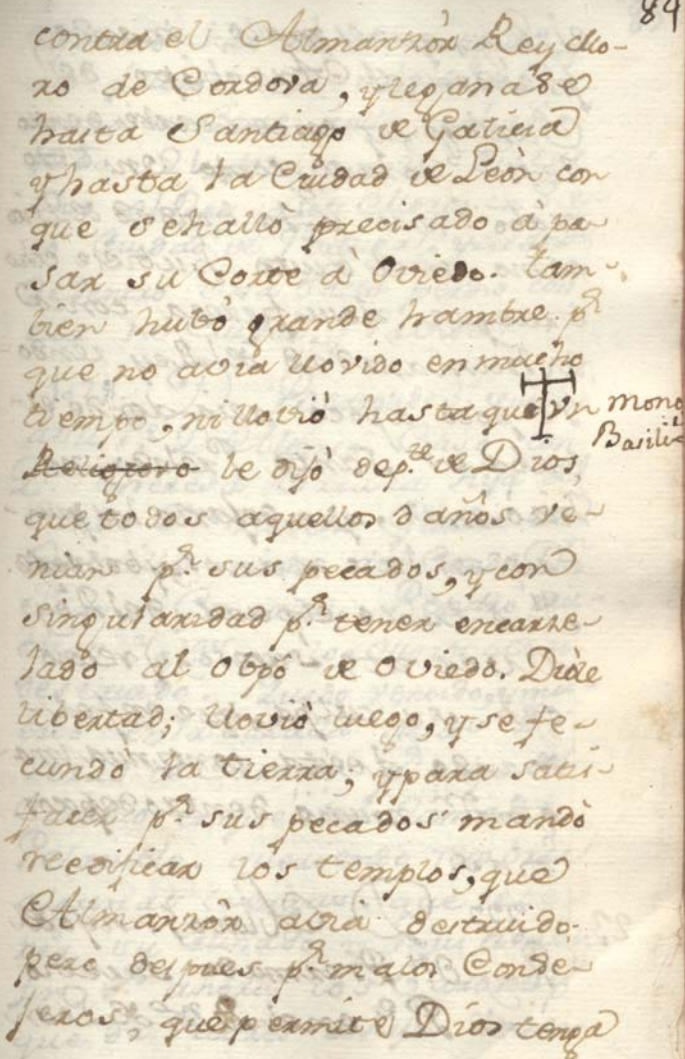 89
contra el Almanzòr Rey Mo-
ro de Cordova, y le ganase
hasta Santiago de Galicia
y hasta la Ciudad de Leòn con
que se hallò precisado à pa-
sar su Corte à Oviedo. tam-
bien hubò grande hambre pr.
que no avia llovido en mucho
tiempo, ni lloviò hasta que vn Mong
Basili
Religioso le dijò dep.te de Dios,
que todos aquellos daños ve-
nian pr. sus pecados, y con
singularidad pr. tener encarze-
lado al Obpô de Oviedo. Diòle
libertad; lloviò luego, y se fe-
cundò la tierra; y para satis-
facer pr. sus pecados mandò
reedificar los templos, que
Almanzòr avia destruido.
pero despues pr. malos Conde-
jeros, que permite Dios tenga